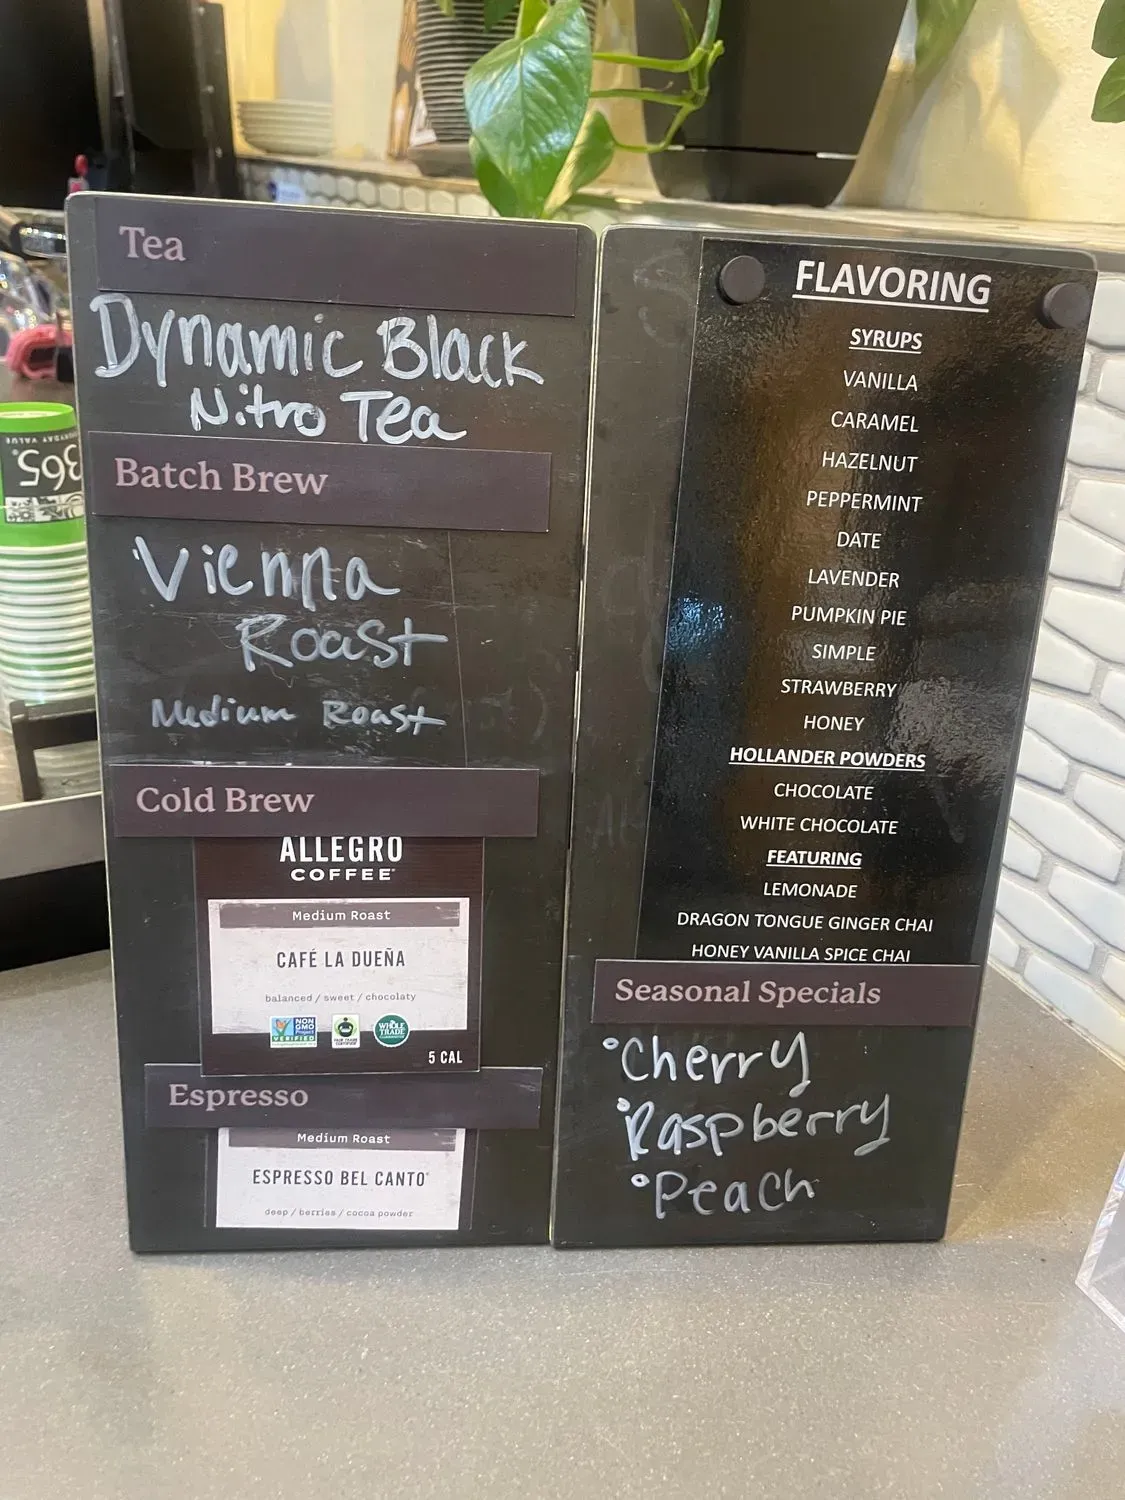 Tea
Dynamic Black
Nitro Tea
Batch Brew
Vienna
Roast
Medium Roast
Cold Brew
ALLEGRO
COFFEE
Medium Roast
CAFÉ LA DUEÑA
balanced / sweet / chocolaty
NON
GMO
Project
VERIFIED
FAIR TRADE
CERTIFIED
WHOLE
TRADE
5 CAL
Espresso
Medium Roast
ESPRESSO BEL CANTO
deep / berries / cocoa powder
FLAVORING
SYRUPS
VANILLA
CARAMEL
HAZELNUT
PEPPERMINT
DATE
LAVENDER
PUMPKIN PIE
SIMPLE
STRAWBERRY
HONEY
HOLLANDER POWDERS
CHOCOLATE
WHITE CHOCOLATE
FEATURING
LEMONADE
DRAGON TONGUE GINGER CHAI
HONEY VANILLA SPICE CHAI
Seasonal Specials
•Cherry
•Raspberry
•Peach
365
EVERYDAY VALUE